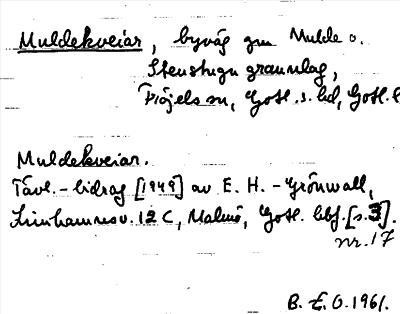 Muldekveiar, byväg gm Mulde o.
Stenstugu grannlag,
Fröjels sn, Gotl. s. hd, Gotl. l
Muldekveiar.
Tävl.-bidrag [1949] av E. H.-Grönwall,
Limhamnsv. 12 C, Malmö, Gotl. bbf. [s. 3].
nr. 17
B. E. O. 1961.